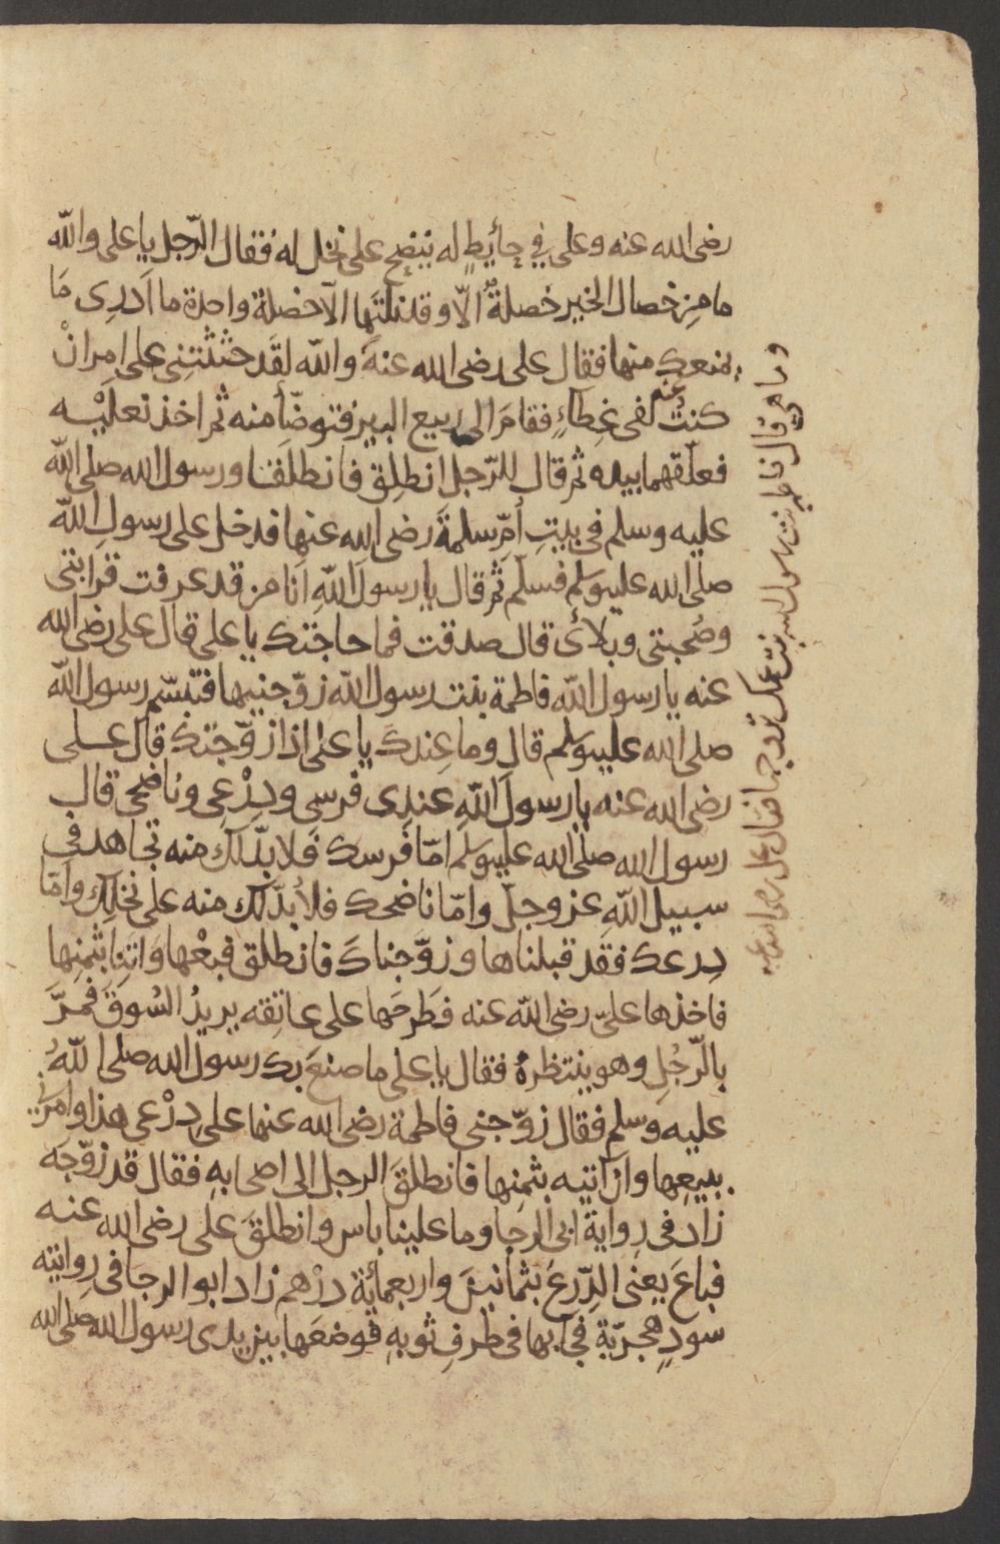 رضى الله عنه وعلى في حائطٍ له ينضح على نخل له فقال الرّجل يا على والله
ما من خصال الخير خصلةٌ الّا وقد نلتَها الا خصلة واحدة ما اَدرِى مَا
يمنعك منها فقال على رضى الله عنه والله لقَد حثثتنى على امر انْ
كنتُ عنه لفى غِطاءٍ فقامَ الى ربيع البير فتوضّأ منه ثم اخذ نعليْه
فعلّقهما بيده ثم قال للرّجل انطلِق فانطلَقنا ورسول الله صلى الله
عليه وسلم فى بيتِ اُمّ سلمةَ رضى الله عنها فدخل على رسولِ الله
صلى الله عليه وسلم فسلّم ثم قال يا رسولَ اللهِ انا من قد عرفت قرابتى
وصُحبتى وبلائى قال صدقت فما حاجتك يا على قال على رضى الله
عنه يا رسول الله فاطمة بنت رسول الله زوّجنيها فتبسّم رسول الله
صلى الله عليه وسلم قال وما عِندكَ يا على اذا زوّجتكَ قال على
رضى الله عنه يا رسولَ اللهِ عندِى فرسى ودِرْعِى وناضحى قال
رسول الله صلى الله عليه وسلم امّا فَرسك فَلا بدّ لك منه تجاهد فى
سبيل اللهِ عز وجلّ وامّا ناضحك فلا بُدّ لك منه على نخلِك وامّا
دِرعك فقد قبلناها وزوّجناكَ فانطلق فبعْها وَاتِنا بثمنِها
فاخذها علىّ رضى الله عنه فَطَرحَها على عاتِقه يريدُ السُوقَ فمرَّ
بالرّجُلِ وهو ينتظرهُ فقال يا على ما صنعَ بك رسول الله صلى اللهُ
عليه وسلم فقال زوّجنى فاطمة رضى الله عنها على دِرْعى هذا وامرنى
ببيعِها وان آتيه بثمنِها فانطلقَ الرجل الى اصحابهِ فقال قد زوّجَه
زاد فى رِواية ابى الرجا وما علينا باس وانطلقَ على رضى الله عنه
فباعَ يعنى الدِّرعَ بثمانينَ واربعمائة درْهم زاد ابو الرجا فى رِوايته
سودٍ هجريّة فجآ بها فى طرفِ ثوبهِ فوضعَها بين يدى رسول الله صلى الله
وما هى قال فاطمة بنت رسول الله بنت عمك تزوجها فقال على رضى الله عنه